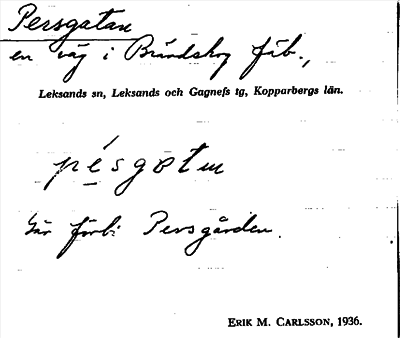 Persgatan
en väg i Brändskog fäb.,
Leksands sn, Leksands och Gagnefs tg, Kopparbergs län.
pésgatn
Går förbi Persgården.
ERIK M. CARLSSON, 1936.